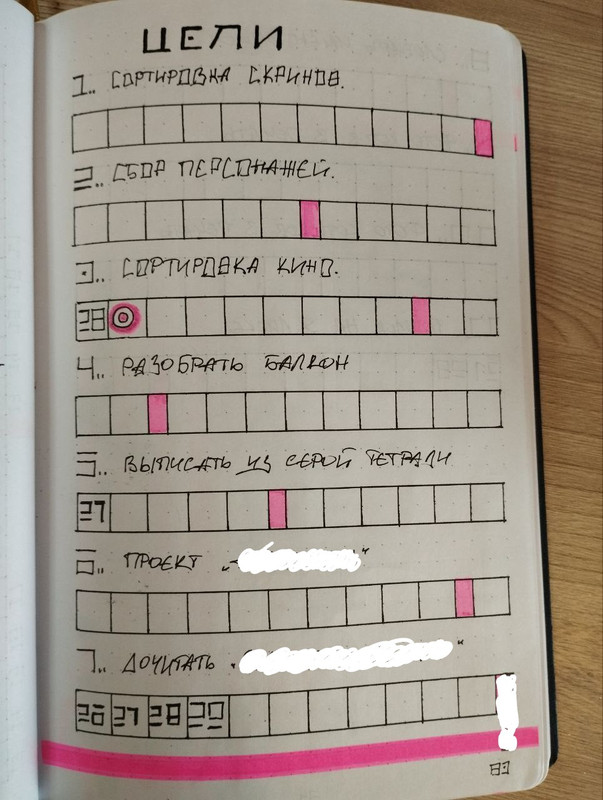 ЦЕЛИ
1.. СОРТИРОВКА СКРИНОВ.
2.. СБОР ПЕРСОНАЖЕЙ.
3.. СОРТИРОВКА КИНО.
28
4.. РАЗОБРАТЬ БАЛКОН
5.. ВЫПИСАТЬ ИЗ СЕРОЙ ТЕТРАДИ
27
6.. ПРОЕКТ „ "
7.. ДОЧИТАТЬ „ "
26 27 28 29
83